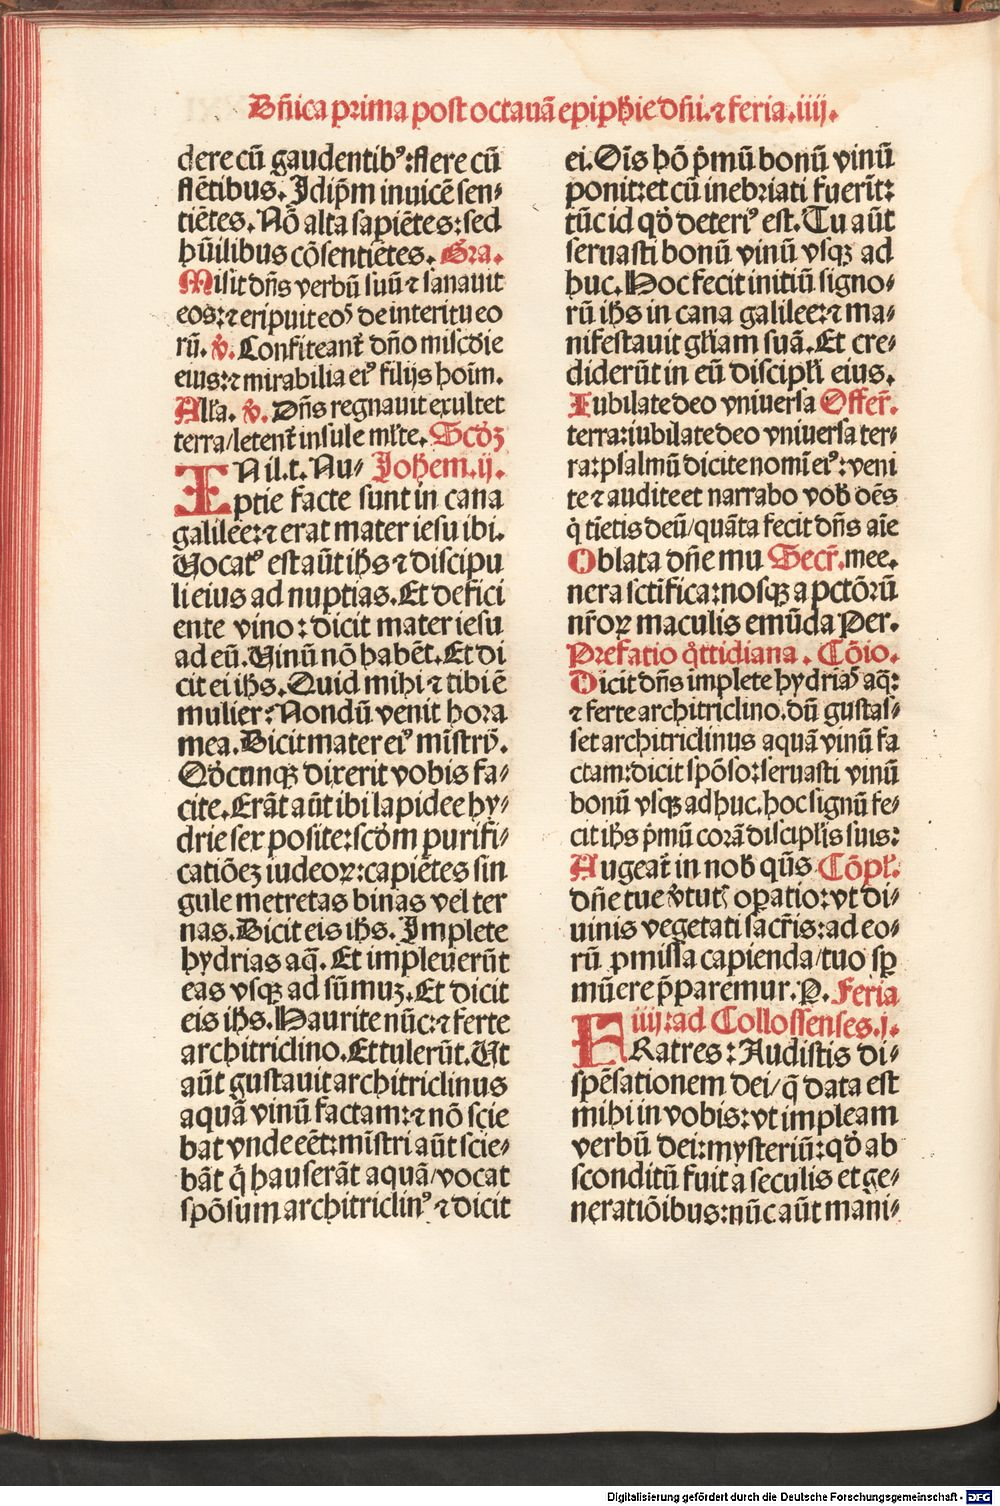 Dn̄ica prima post octauā epiphie dn̄i. ⁊ feria. iiij.
dere cū gaudentibꝰ: flere cū
flētibus. Idip̄m inuicē sen⸗
tiētes. Nō alta sapiētes: sed
hūilibus cōsentiētes. Gra.
Misit dn̄s verbū suū ⁊ sanauit
eos: ⁊ eripuit eoꝭ de interitu eo
rū. v̄. Confiteant̄ dn̄o misc̄die
eius: ⁊ mirabilia eiꝰ filijs hoīm.
All̄a. v̄. Dn̄s regnauit exultet
terra/letent̄ insule ml̄te. Scd̄ꝫ
IN il. t. Nu⸗ Johem. ij.
ptie facte sunt in cana
galilee: ⁊ erat mater iesu ibi.
Vocatꝰ est aūt ih̄s ⁊ discipu
li eius ad nuptias. Et defici
ente vino: dicit mater iesu
ad eū. Vinū nō habēt. Et di
cit ei ih̄s. Quid mihi ⁊ tibi ē
mulier: Nondū venit hora
mea. Dicit mater eiꝰ mīstrꝭ.
Qd̄cunqꝫ dixerit vobis fa⸗
cite. Erāt aūt ibi lapidee hy⸗
drie sex posite: scd̄m purifi⸗
catiōeꝫ iudeoꝝ: capiētes sin
gule metretas binas vel ter
nas. Dicit eis ih̄s. Implete
hydrias aq̄. Et impleuerūt
eas vsqꝫ ad sūmuꝫ. Et dicit
eis ih̄s. Haurite nūc: ⁊ ferte
architriclino. Et tulerūt. Ut
aūt gustauit architriclinus
aquā vinū factam: ⁊ nō scie
bat vnde eēt: mīstri aūt scie⸗
bāt q̄ hauserāt aquā/vocat
spōsum architriclinꝰ ⁊ dicit
ei. Oīs hō p̄mū bonū vinū
ponit: et cū inebriati fuerīt:
tūc id qd̄ deteriꝰ est. Tu aūt
seruasti bonū vinū vsqꝫ ad
huc. Hoc fecit initiū signo⸗
rū ih̄s in cana galilee: ⁊ ma⸗
nifestauit gl̄iam suā. Et cre⸗
diderūt in eū discipl̄i eius.
Iubilate deo vniuersa Offer̄.
terra: iubilate deo vniuersa ter⸗
ra: psalmū dicite nomī eiꝰ: veni
te ⁊ audite et narrabo vob̄ oēs
q̄ tīetis deū/quāta fecit dn̄s aīe
Oblata dn̄e mu Secr̄. mee.
nera sctīfica: nosqꝫ a pctōrū
nr̄oꝝ maculis emūda Per.
Prefatio q̄ttidiana. Cōio.
Dicit dn̄s implete hydriaꝭ aq̄:
⁊ ferte architriclino. dū gustas⸗
set architriclinus aquā vinū fa
ctam: dicit spōso: seruasti vinū
bonū vsqꝫ adhuc. hoc signū fe⸗
cit ih̄s p̄mū corā discipl̄is suis:
Augeat̄ in nob̄ qūs Cōpl̄.
dn̄e tue v̄tutꝭ oꝑatio: vt di⸗
uinis vegetati sacr̄is: ad eo⸗
rū ꝓmissa capienda/tuo sꝑ
mūere p̄paremur. P. Feria
iiij: ad Collossenses. j.
FRatres: Audistis di⸗
spēsationem dei/q̄ data est
mihi in vobis: vt impleam
verbū dei: mysteriū: qd̄ ab
sconditū fuit a seculis et ge⸗
neratiōibus: nūc aūt mani⸗
Digitalisierung gefördert durch die Deutsche Forschungsgemeinschaft - DFG